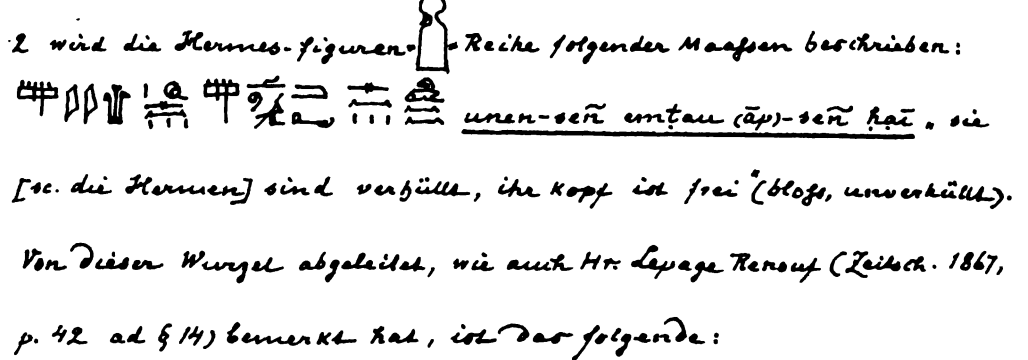 2 wird die Hermes-figuren- - Reihe folgender Maafsen beschrieben:
unen-señ emṭau (āp)-señ ḥaī „ sie
[sc. die Hermen] sind verhüllt, ihr Kopf ist frei" (blofs, unverhüllt).
Von dieser Wurzel abgeleitet, wie auch Hr. Lepage Renouf (Zeitsch. 1867,
p. 42 ad § 14) bemerkt hat, ist das folgende: